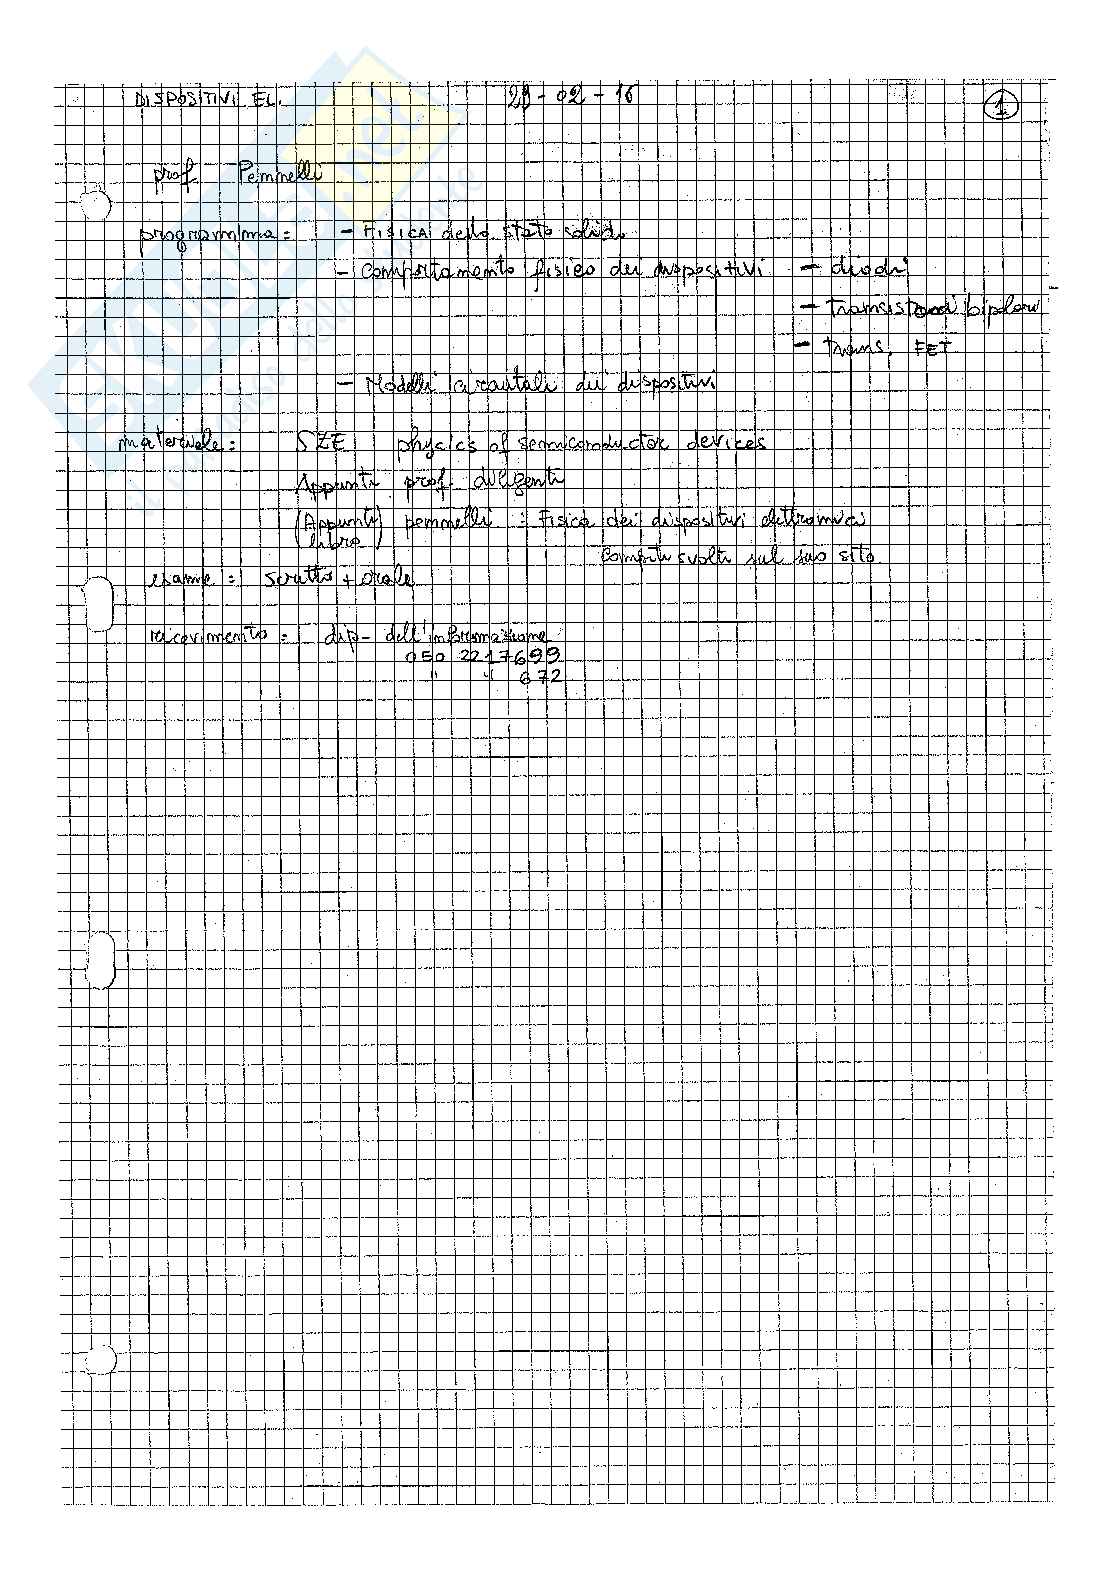 DISPOSITIVI EL. 29-02-16 1
prof. Pennelli
programma: - FISICA dello stato solido
- Comportamento fisico dei dispositivi - diodi
- transistori bipolari
- trans. FET
- Modelli circuitali dei dispositivi
materiale: SZE physics of semiconductor devices
Appunti prof. diligenti
(Appunti) pennelli : Fisica dei dispositivi elettronici
(libro)
Compiti svolti sul suo sito
esame: scritto + orale
ricevimento: dip- dell'informazione
050 2217699
" " 672
skuola.net